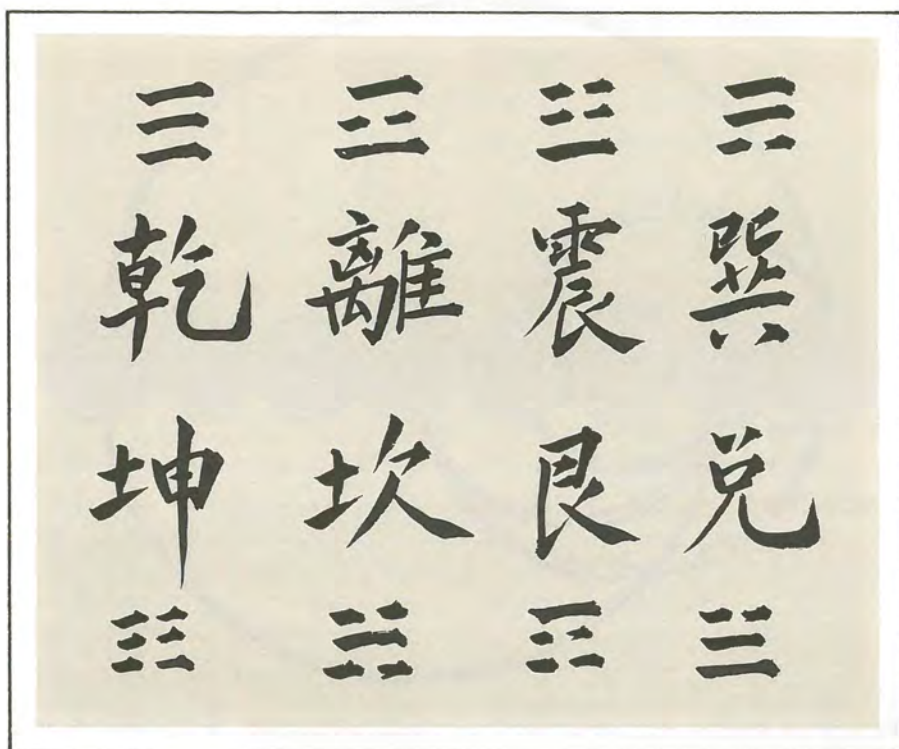 ☰ ☲ ☳ ☴
乾 離 震 巽
坤 坎 艮 兑
☷ ☵ ☶ ☱